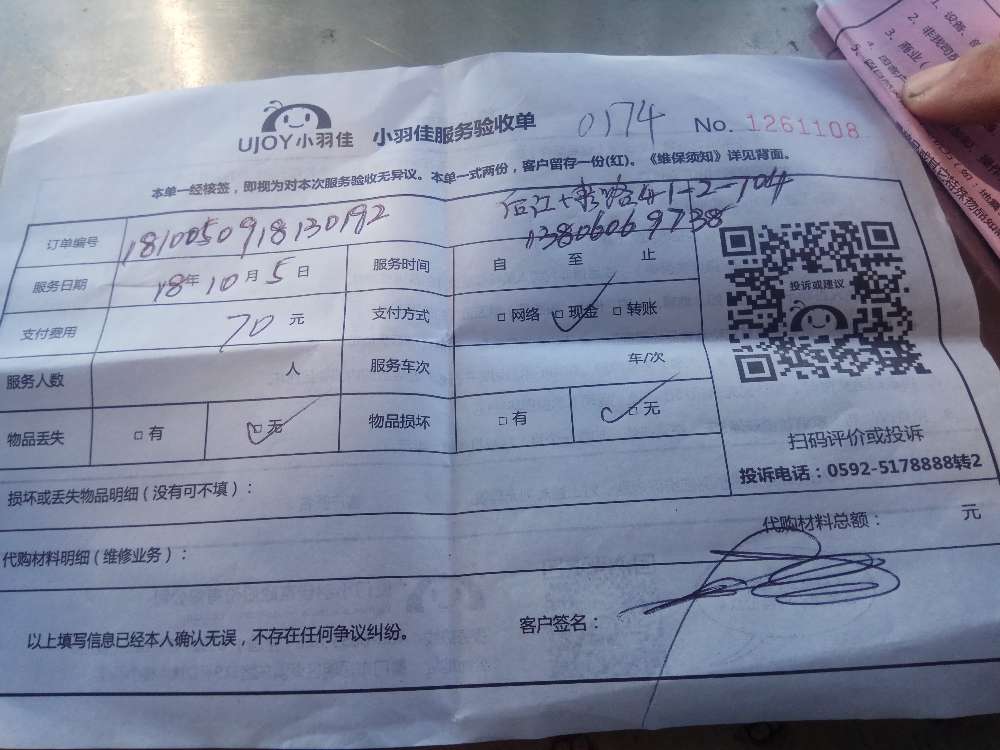 UJOY小羽佳 小羽佳服务验收单 0174 No. 1261108
本单一经核签，即视为对本次服务验收无异议。本单一式两份，客户留存一份(红)。《维保须知》详见背面。
订单编号 1810050918130192 41-2-104
13806069738
服务日期 18年10月5日 服务时间 自 至 止
支付费用 70元 支付方式 □网络 □现金 □转账
服务人数 人 服务车次 车/次
物品丢失 □有 □无 物品损坏 □有 □无
投诉或建议
扫码评价或投诉
投诉电话：0592-5178888转2
损坏或丢失物品明细（没有可不填）：
代购材料明细（维修业务）： 代购材料总额： 元
以上填写信息已经本人确认无误，不存在任何争议纠纷。 客户签名：
1、设备、
2、非我司
3、商业（